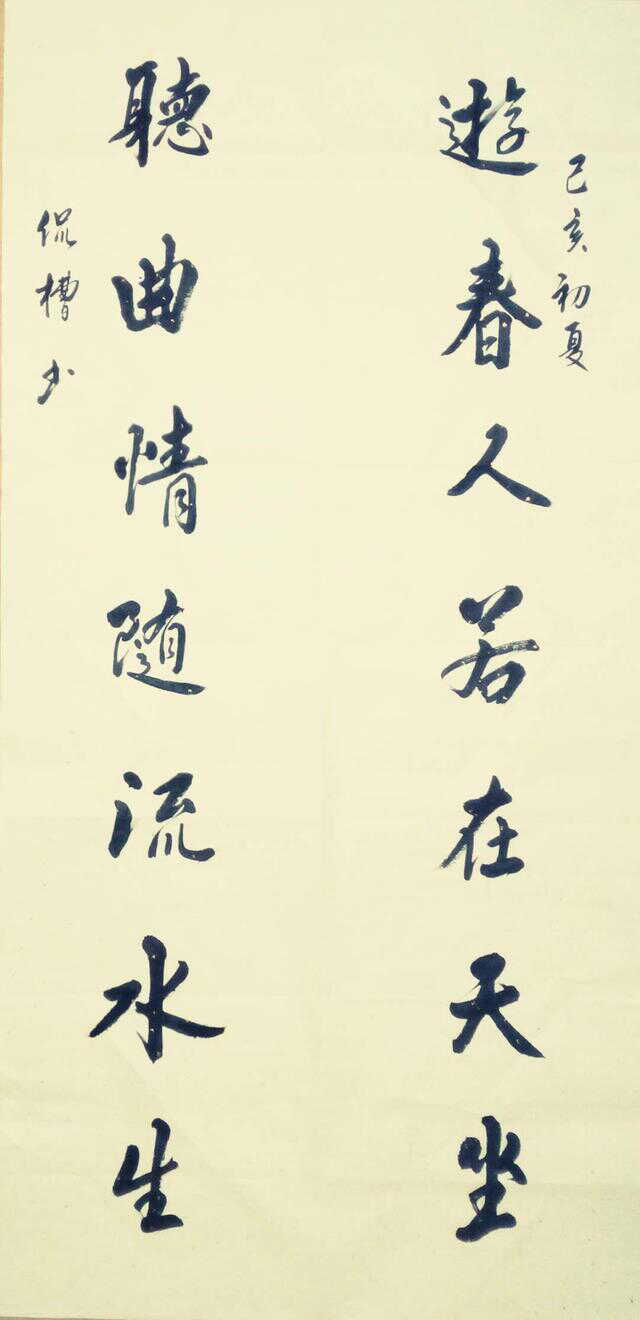 己亥初夏
遊春人若在天坐
聽曲情随流水生
侃槽书